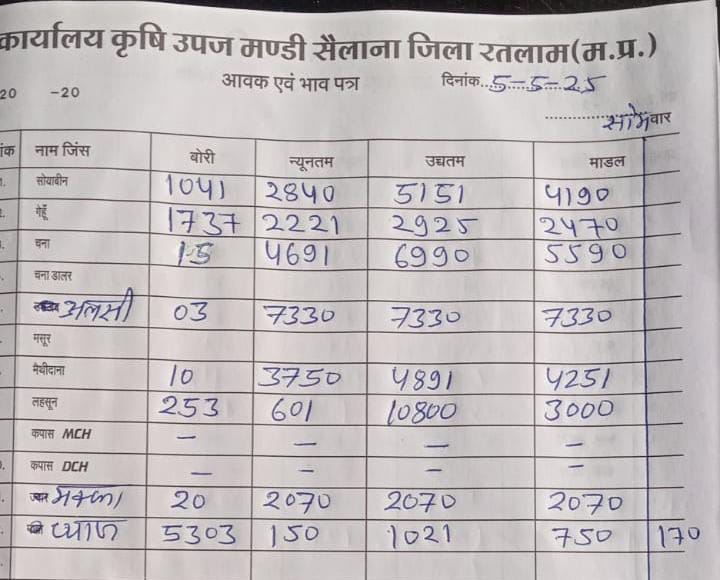 कार्यालय कृषि उपज मण्डी सैलाना जिला रतलाम(म.प्र.)
आवक एवं भाव पत्र दिनांक..5-5-25
20 -20
सोमवार
ांक नाम जिंस बोरी न्यूनतम उच्चतम माडल
1. सोयाबीन 1041 2840 5151 4190
2. गेहूँ 1737 2221 2925 2470
3. चना 15 4691 6990 5590
चना डालर
अलसी 03 7330 7330 7330
मसूर
मैथीदाना 10 3750 4891 4251
लहसून 253 601 10800 3000
कपास MCH — — — —
कपास DCH — — — —
मक्का 20 2070 2070 2070
प्याज 5303 150 1021 750 170